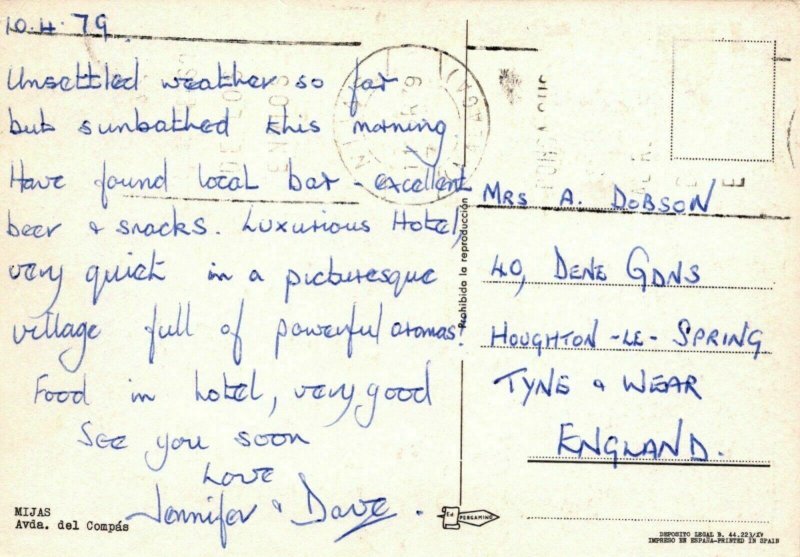 10.4.79
Unsettled weather so far
but sunbathed this morning
Have found local bar - excellent
beer & snacks. Luxurious Hotel,
very quiet in a picturesque
village full of powerful aromas!
Food in hotel, very good
See you soon
Love
Jennifer & Dave.
MIJAS
Avda. del Compás
Prohibida la reproducción
MRS A. DOBSON
40, DENE GDNS
HOUGHTON-LE-SPRING
TYNE & WEAR
ENGLAND.
Ed. PERGAMINO
DEPOSITO LEGAL B. 44.223/XV
IMPRESO EN ESPAÑA-PRINTED IN SPAIN